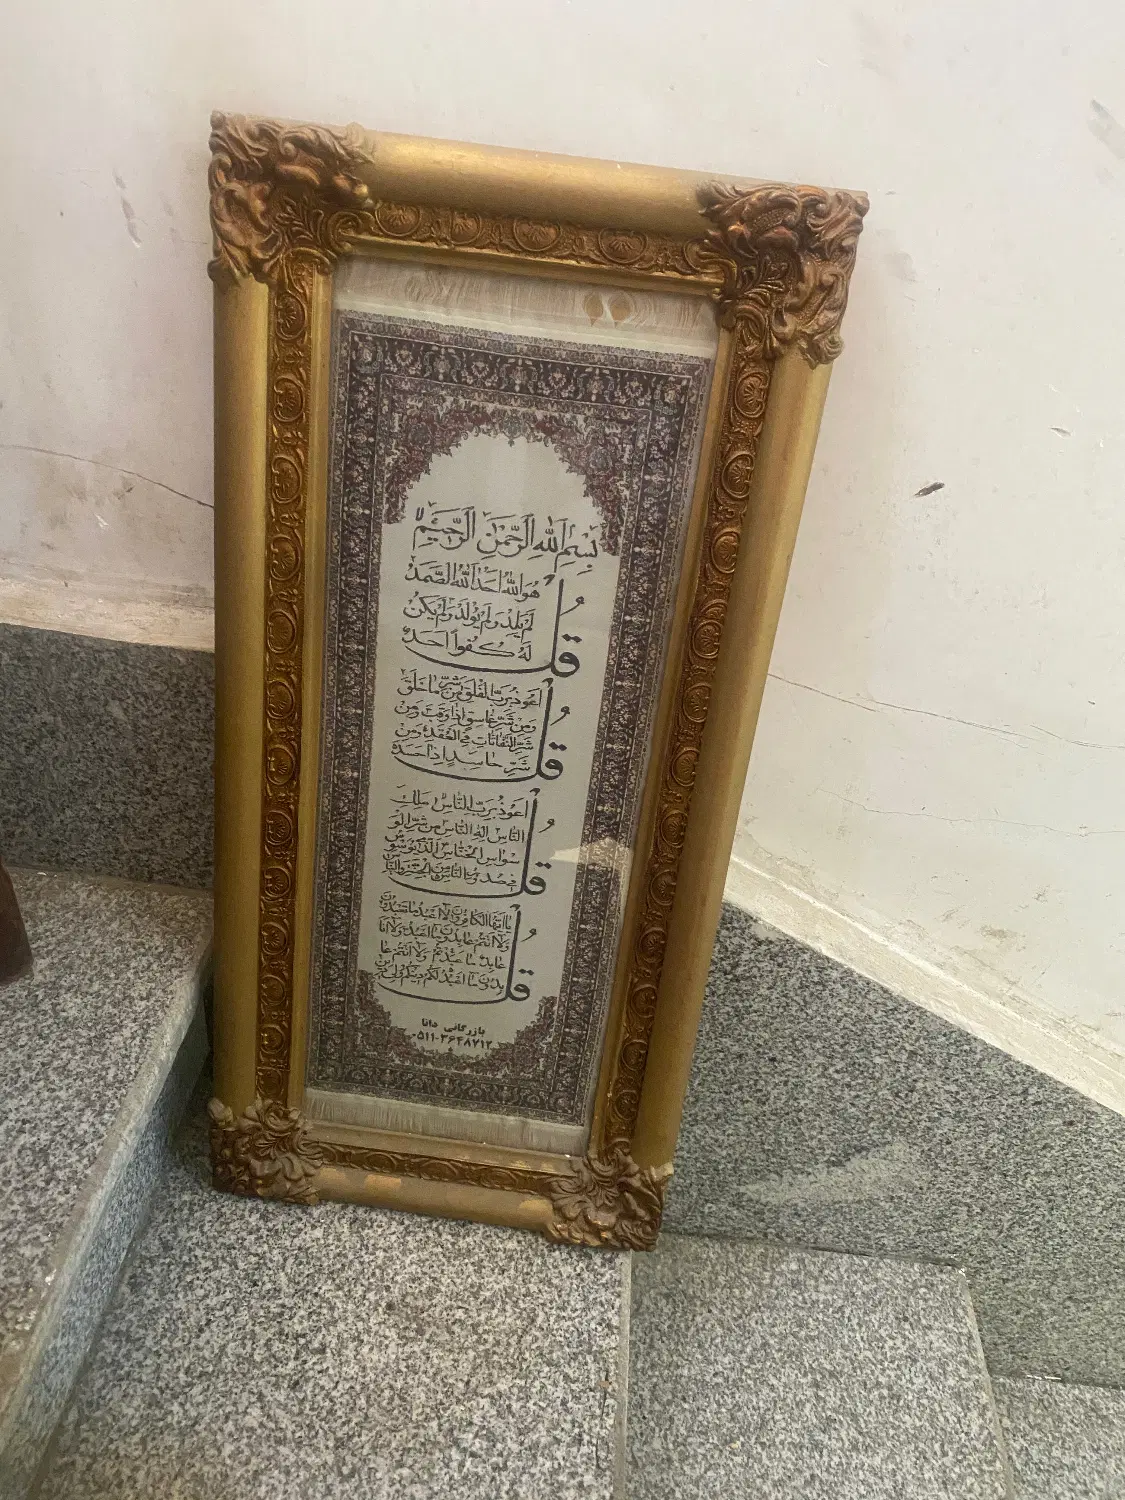 بِسْمِ اللهِ الرَّحْمٰنِ الرَّحِيْمِ
قُلْ هُوَ اللهُ اَحَدٌ اللهُ الصَّمَدُ
لَمْ يَلِدْ وَلَمْ يُولَدْ وَلَمْ يَكُنْ
لَهُ كُفُواً اَحَدٌ
قُلْ اَعُوذُ بِرَبِّ الْفَلَقِ مِنْ شَرِّ مَا خَلَقَ
وَمِنْ شَرِّ غَاسِقٍ اِذَا وَقَبَ وَمِنْ
شَرِّ النَّفَّاثَاتِ فِي الْعُقَدِ وَمِنْ
شَرِّ حَاسِدٍ اِذَا حَسَدَ
قُلْ اَعُوذُ بِرَبِّ النَّاسِ مَلِكِ
النَّاسِ اِلٰهِ النَّاسِ مِنْ شَرِّ الْوَ
سْوَاسِ الْخَنَّاسِ الَّذِي يُوَسْوِسُ
فِي صُدُورِ النَّاسِ مِنَ الْجِنَّةِ وَالنَّاسِ
قُلْ يَا اَيُّهَا الْكَافِرُونَ لَا اَعْبُدُ مَا تَعْبُدُونَ
وَلَا اَنْتُمْ عَابِدُونَ مَا اَعْبُدُ وَلَا اَنَا
عَابِدٌ مَا عَبَدْتُمْ وَلَا اَنْتُمْ عَا
بِدُونَ مَا اَعْبُدُ لَكُمْ دِينُكُمْ وَلِيَ دِينِ
بازرگانی دانا
۰۵۱۱-۳۶۴۸۷۱۳